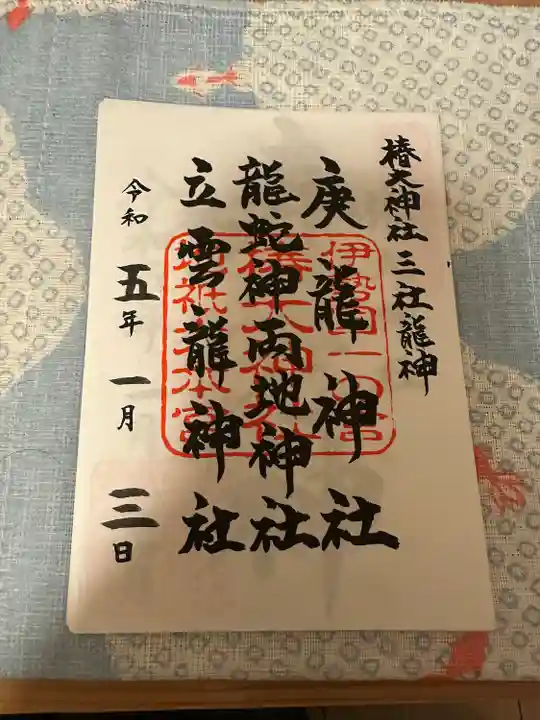 椿大神社三社龍神
庚龍神社
龍蛇神両地神社
立雲龍神社
令和五年一月三日
伊勢国一の宮
椿大神社
地祇大本宮